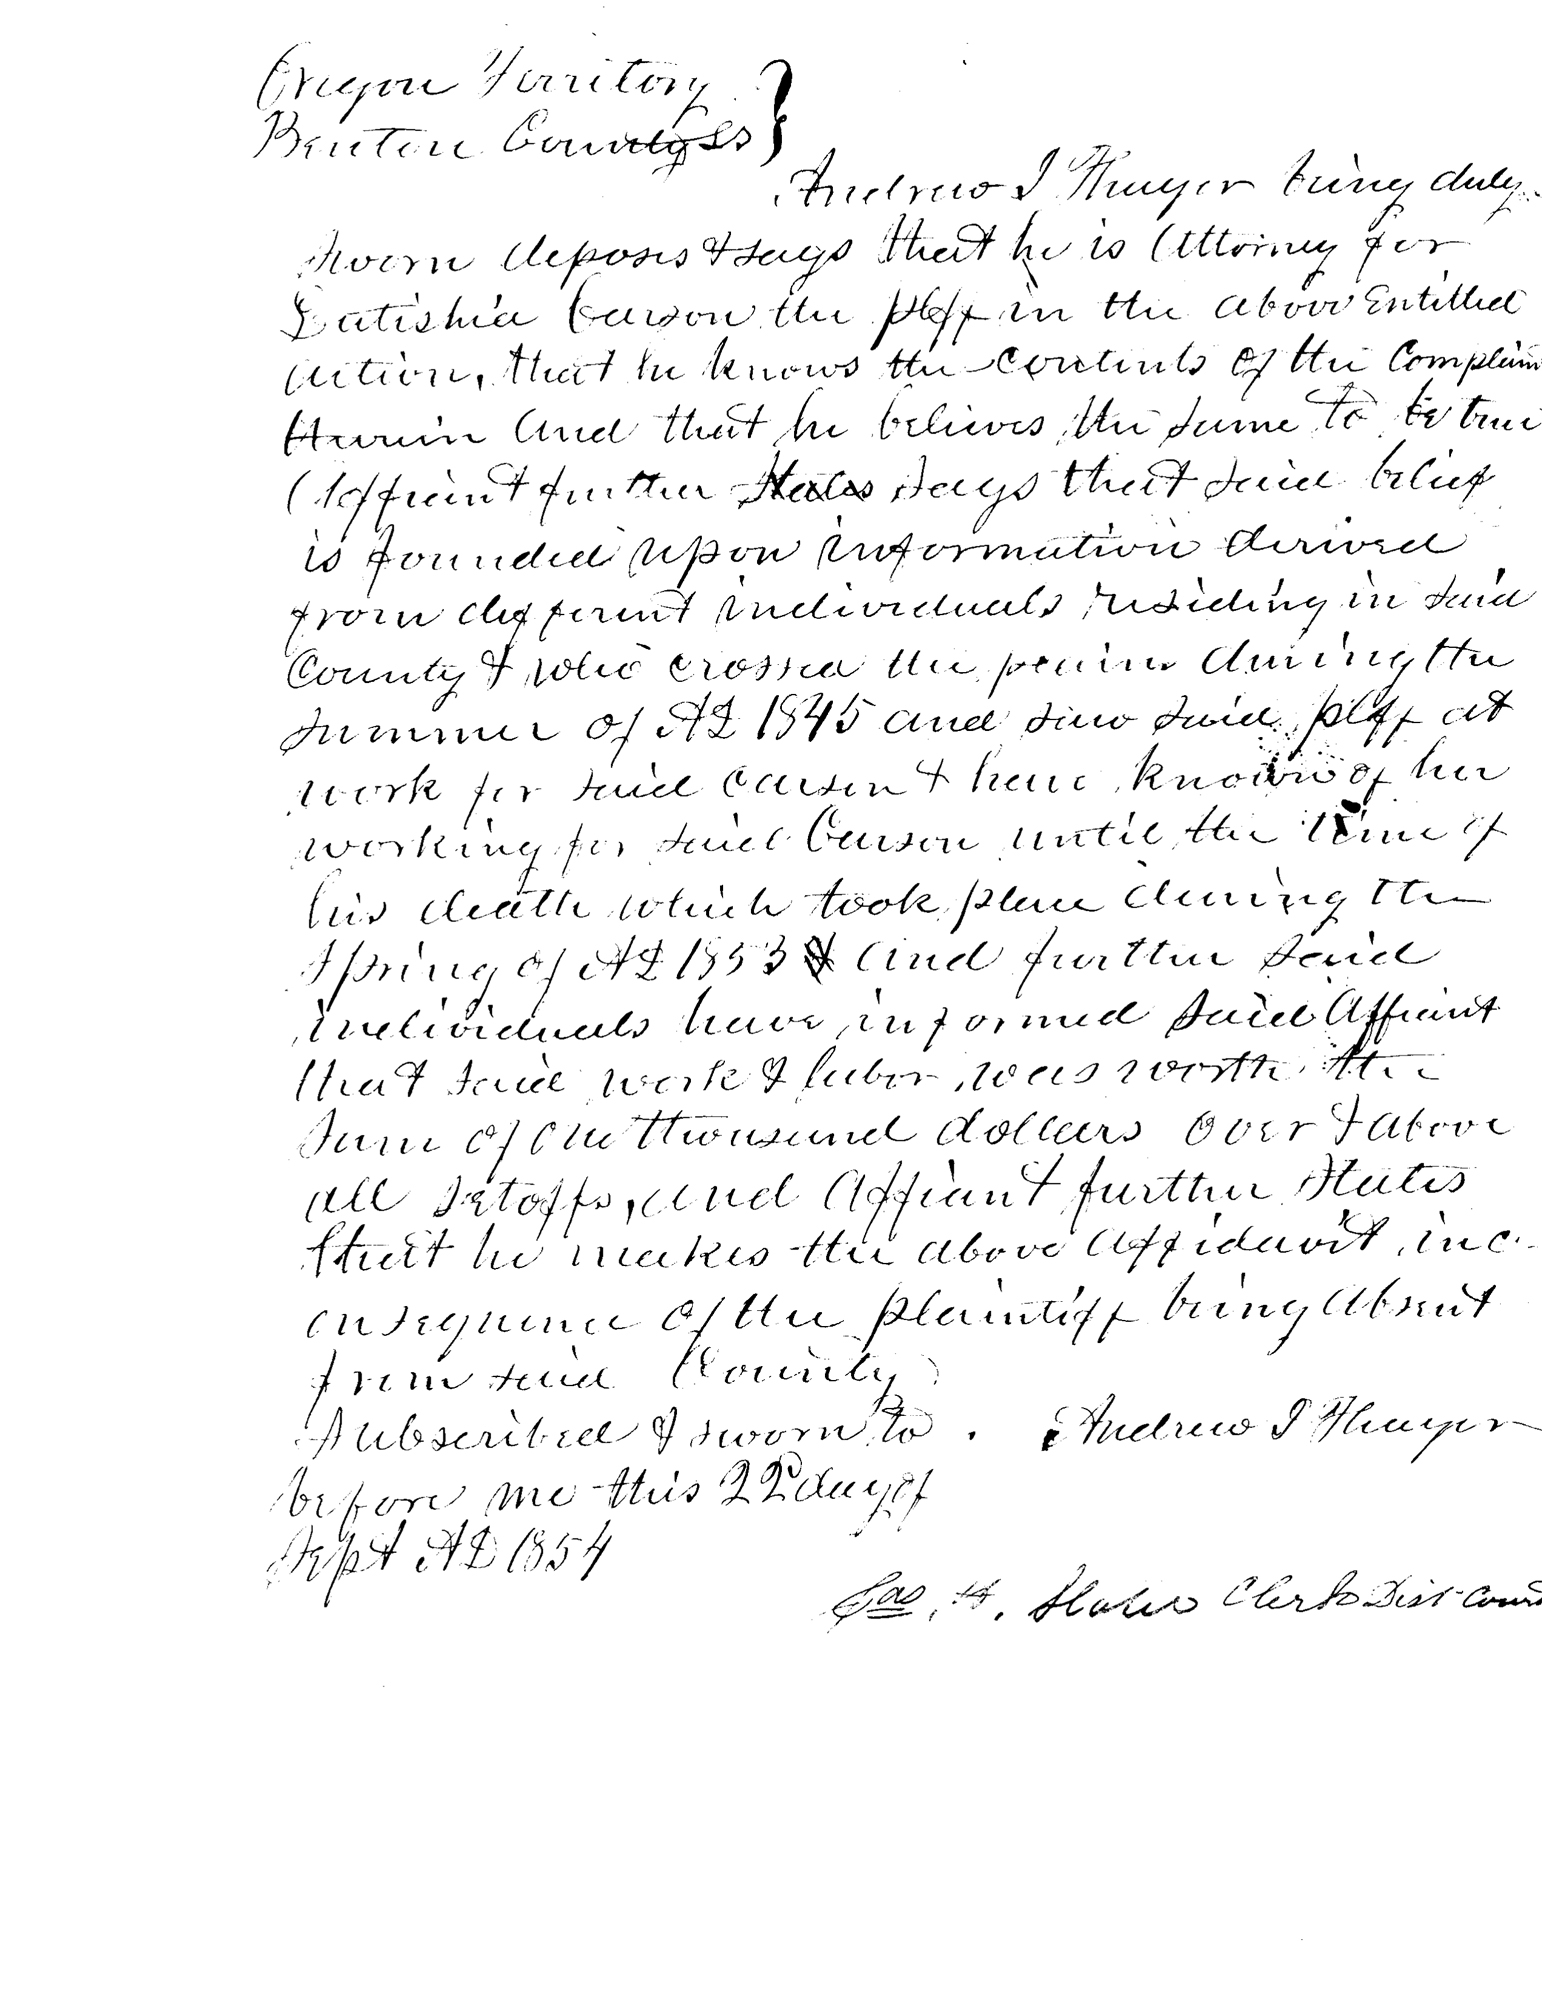 Oregon Territory }
Benton County ss }
Andrew J Thayer being duly
sworn deposes & says that he is Attorney for
Latishia Carson the plff in the above Entitled
action, that he knows the contents of the Complain
therein and that he believes the same to be true
Affiant further states says that said belief
is founded upon information derived
from different individuals residing in said
County & who crossed the plains during the
summer of AD 1845 and saw said plff at
work for said Carson & have known of her
working for said Carson until the time of
his death which took place during the
Spring of AD 1853 & and further said
individuals have informed said Affiant
that said work & labor was worth the
sum of one thousand dollars over & above
all setoffs, and Affiant further States
that he makes the above affidavit in c
onsequence of the plaintiff being absent
from said County
Subscribed & sworn to . Andrew J Thayer
before me this 22d day of
Sept AD 1854
Jas. H. Slater Clerk Dist Court